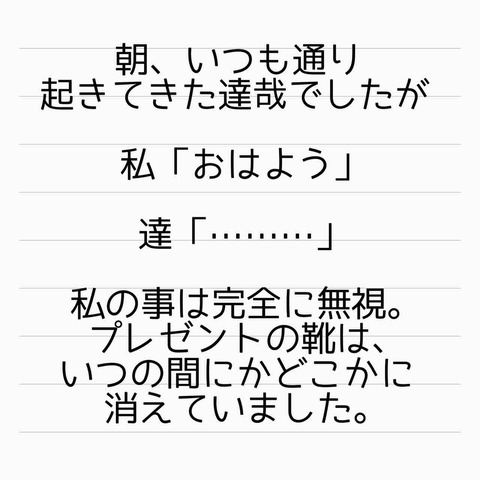 朝、いつも通り
起きてきた達哉でしたが
私「おはよう」
達「………」
私の事は完全に無視。
プレゼントの靴は、
いつの間にかどこかに
消えていました。